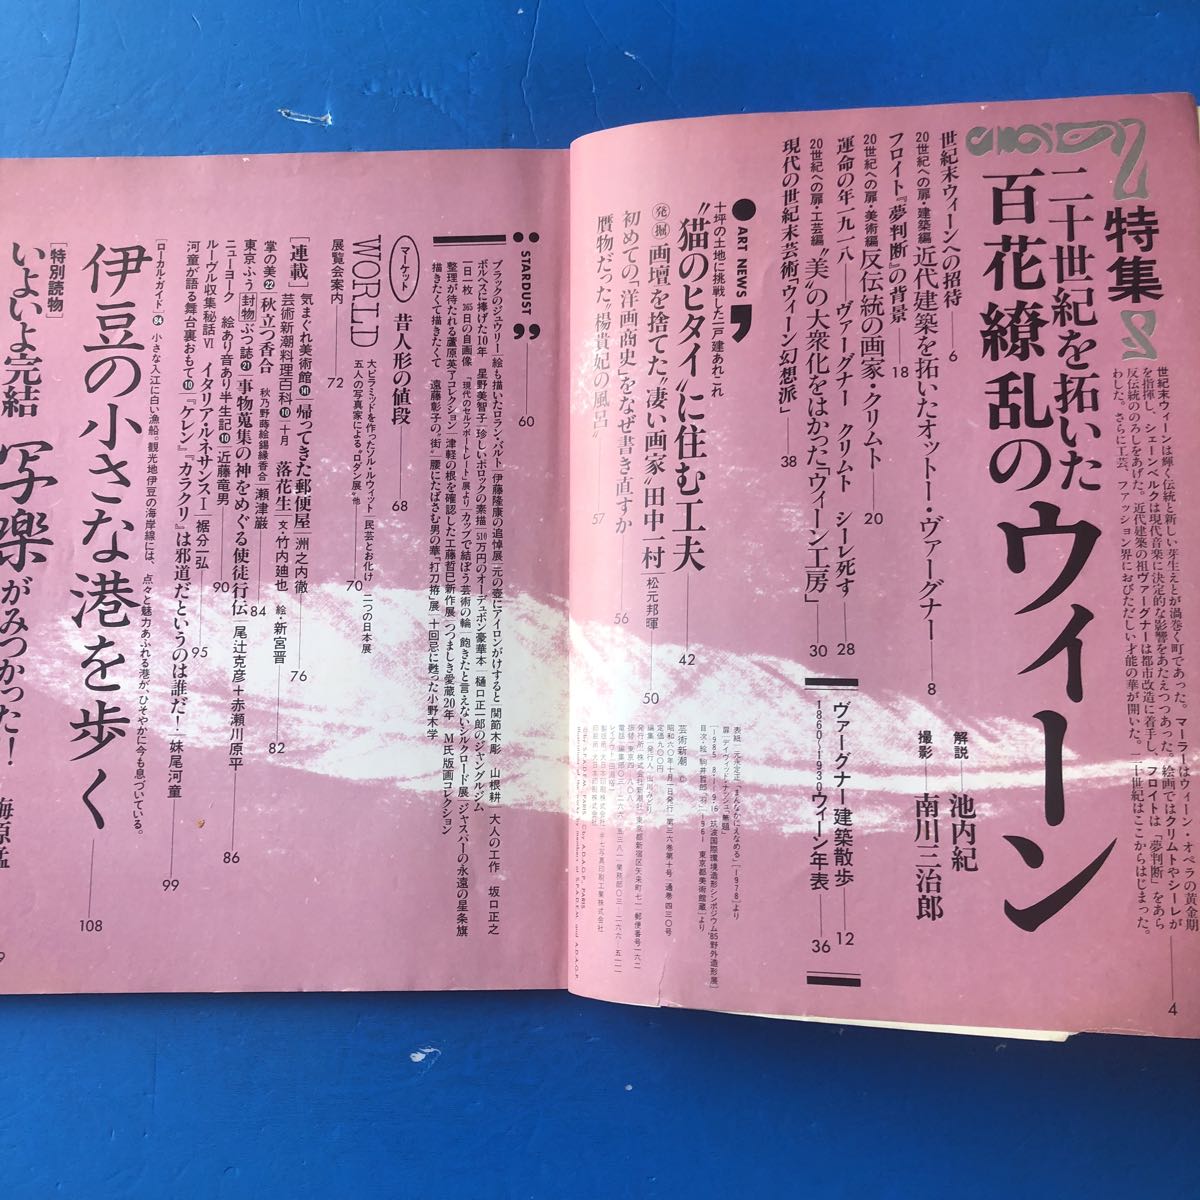 特集
二十世紀を拓いた
百花繚乱のウィーン
世紀末ウィーンは輝く伝統と新しい芽生えとが渦巻く町であった。マーラーはウィーン・オペラの黄金期
を指揮し、シェーンベルクは現代音楽に決定的な影響をあたえつつあった。絵画ではクリムトやシーレが
反伝統ののろしをあげた。近代建築の祖ヴァーグナーは都市改造に着手し、フロイトは「夢判断」をあら
わした。さらに工芸、ファッション界におびただしい才能の華が開いた。二十世紀はここからはじまった。
4
解説 池内紀
撮影 南川三治郎
世紀末ウィーンへの招待 6
20世紀への扉・建築編 近代建築を拓いたオットー・ヴァーグナー 8
フロイト『夢判断』の背景 18
20世紀への扉・美術編 反伝統の画家・クリムト 20
運命の年一九一八——ヴァーグナー クリムト シーレ死す 28
20世紀への扉・工芸編 “美”の大衆化をはかった「ウィーン工房」 30
現代の世紀末芸術「ウィーン幻想派」 38
ヴァーグナー建築散歩 12
1860〜1930ウィーン年表 36
ART NEWS
十坪の土地に挑戦した一戸建あれこれ
“猫のヒタイ”に住む工夫 42
発掘 画壇を捨てた“凄い画家”田中一村 松元邦暉 50
初めての「洋画商史」をなぜ書き直すか 56
贋物だった“楊貴妃の風呂” 57
表紙
芸術新潮
昭和六〇年十月一日発行 第三六巻第十号 通巻四三〇号
定価九〇〇円
編集・発行人 山川みどり
発行所 株式会社新潮社 東京都新宿区矢来町七一 郵便番号一六二
STARDUST 60
ブラックのジュウリー 絵も描いたロラン・バルト 伊藤隆康の追悼展 元の壺にアイロンがけすると 関節木彫 山根耕 大人の工作 坂口正之
ボルヘスに捧げた10年 星野美智子 珍しいポロックの素描 510万円のオーデュボン豪華本 樋口正一郎のジャングルジム
一日一枚 365日の自画像 「現代のセルフポートレート」展より カップで結ぼう芸術の輪 飽きたと言えないシルクロード展 ジャスパーの永遠の星条旗
整理が待たれる蘆原英了コレクション 津軽の根を確認した工藤哲巳新作展 つつましき愛蔵20年 M氏版画コレクション
描きたくて描きたくて 遠藤彰子の“街” 腰にたばさむ男の華「打刀拵」展 十回忌に甦った小野木学
マーケット 昔人形の値段 68
WORLD
大ピラミッドを作ったソル・ルウィット 民芸とお化け 二つの日本展
五人の写真家による“ロダン展”他
70
展覧会案内 72
[連載] 気まぐれ美術館 帰ってきた郵便屋 洲之内徹 76
芸術新潮料理百科 10 十月 落花生 文・竹内廸也 絵・新宮晋 82
掌の美 22 秋立つ香合 秋乃野蒔絵錫縁香合 瀬津巌 84
東京ふう 封物 ぶつ誌 21 事物蒐集の神をめぐる使徒行伝 尾辻克彦＋赤瀬川原平 86
ニューヨーク 絵あり音あり半生記 10 近藤竜男 90
ルーヴル収集秘話 VI イタリア・ルネサンスー 裾分一弘 95
河童が語る舞台裏おもて 10 『ケレン』『カラクリ』は邪道だというのは誰だ！ 妹尾河童 99
[ローカルガイド] 84 小さな入江に白い漁船。観光地伊豆の海岸線には、点々と魅力あふれる港が、ひそやかに今も息づいている。
伊豆の小さな港を歩く 108
[特別読物]
いよいよ完結 写楽がみつかった！ 梅原猛